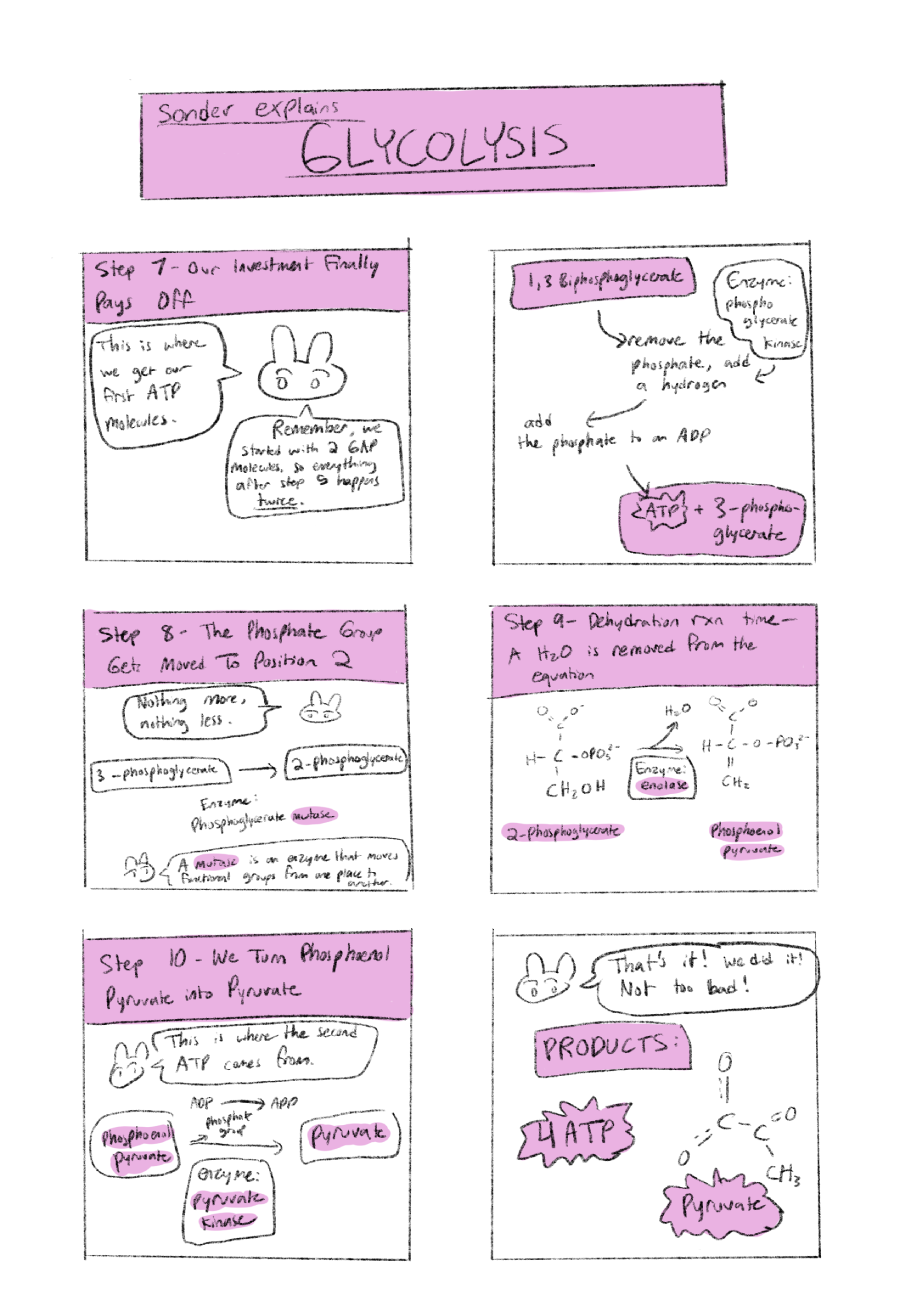 Sonder explains
GLYCOLYSIS
Step 7 - Our Investment Finally
Pays Off
This is where
we get our
first ATP
molecules.
Remember, we
started with 2 GAP
molecules, so everything
after step 5 happens
twice.
1,3 Biphosphoglycerate
Enzyme:
phospho
glycerate
kinase
remove the
phosphate, add
a hydrogen
add
the phosphate to an ADP
ATP + 3-phospho-
glycerate
Step 8 - The Phosphate Group
Gets Moved To Position 2
Nothing more,
nothing less.
3-phosphoglycerate
2-phosphoglycerate
Enzyme:
Phosphoglycerate mutase
A mutase is an enzyme that moves
functional groups from one place to
another.
Step 9 - Dehydration rxn time -
A H₂O is removed from the
equation
O O⁻
C
H - C - OPO₃²⁻
CH₂OH
H₂O
Enzyme:
enolase
O O⁻
C
H - C - O - PO₃²⁻
CH₂
2-Phosphoglycerate
Phosphoenol
pyruvate
Step 10 - We Turn Phosphoenol
Pyruvate into Pyruvate
This is where the second
ATP comes from.
ADP
phosphate
group
Phosphoenol
pyruvate
Pyruvate
enzyme:
pyruvate
kinase
That's it! we did it!
Not too bad!
PRODUCTS:
4 ATP
O
C - C = O
O
CH₃
Pyruvate